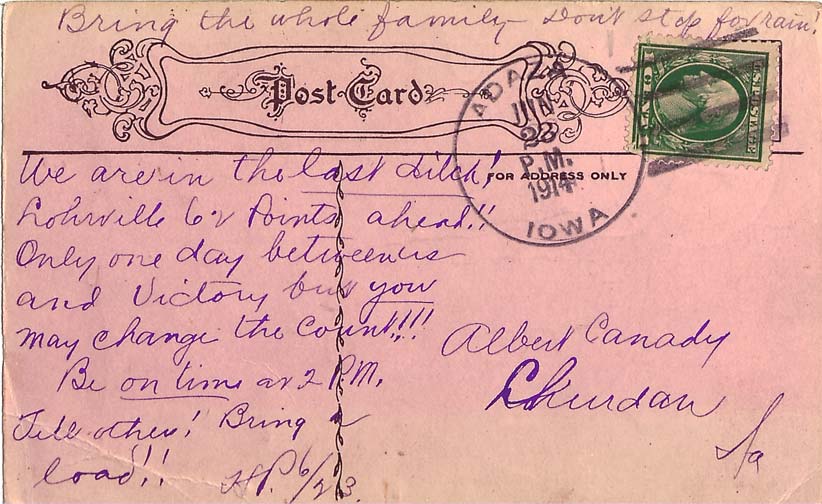 Bring the whole family Don't stop for rain!
Post Card
ADAZA
JUN
23
P.M.
1914
IOWA
FOR ADDRESS ONLY
We are in the last ditch!
Lohrville 62 Points ahead!!
Only one day between us
and Victory but you
may change the count!!!
Be on time at 2 P.M.
Tell others! Bring a
load!! H.P. 6/23.
Albert Canady
Churdan
Ia